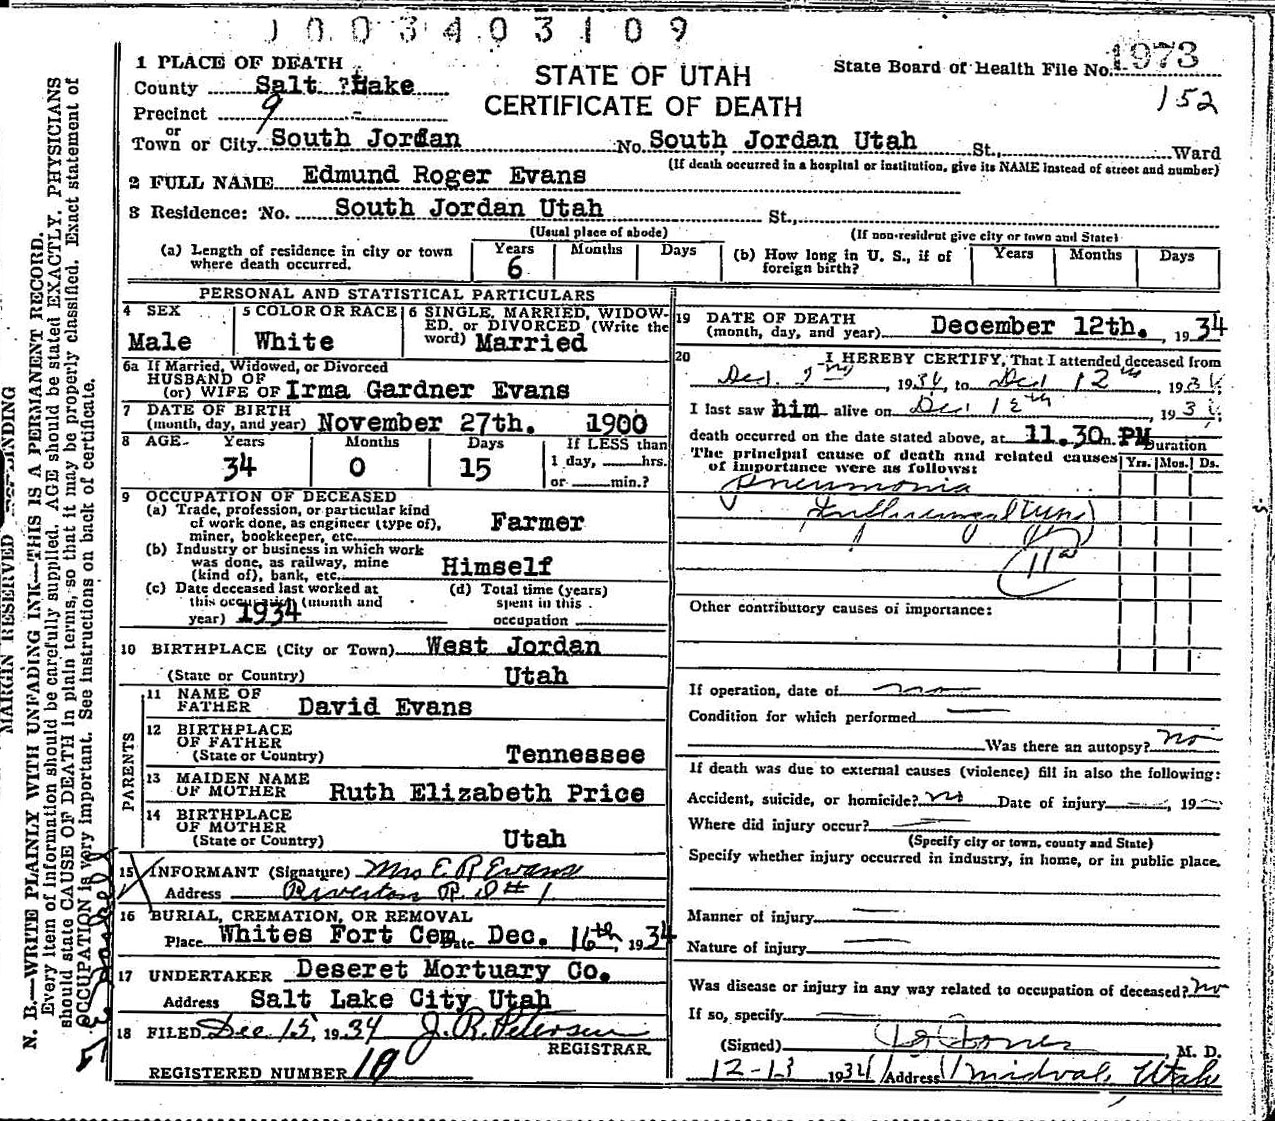 1003403109
1 PLACE OF DEATH
County Salt Lake
Precinct 9
or
Town or City South Jordan No. South Jordan Utah St., Ward
STATE OF UTAH
CERTIFICATE OF DEATH
State Board of Health File No. 1973
152
(If death occurred in a hospital or institution, give its NAME instead of street and number)
2 FULL NAME Edmund Roger Evans
3 Residence: No. South Jordan Utah St.,
(Usual place of abode) (If non-resident give city or town and State)
(a) Length of residence in city or town where death occurred. Years 6 Months Days
(b) How long in U. S., if of foreign birth? Years Months Days
PERSONAL AND STATISTICAL PARTICULARS
4 SEX Male
5 COLOR OR RACE White
6 SINGLE, MARRIED, WIDOWED, or DIVORCED (Write the word) Married
6a If Married, Widowed, or Divorced
HUSBAND OF
(or) WIFE OF Irma Gardner Evans
7 DATE OF BIRTH
(month, day, and year) November 27th. 1900
8 AGE Years 34 Months 0 Days 15 If LESS than 1 day, hrs. or min.?
9 OCCUPATION OF DECEASED
(a) Trade, profession, or particular kind of work done, as engineer (type of), miner, bookkeeper, etc. Farmer
(b) Industry or business in which work was done, as railway, mine (kind of), bank, etc. Himself
(c) Date deceased last worked at this occupation (month and year) 1934
(d) Total time (years) spent in this occupation
10 BIRTHPLACE (City or Town) West Jordan
(State or Country) Utah
PARENTS
11 NAME OF FATHER David Evans
12 BIRTHPLACE OF FATHER (State or Country) Tennessee
13 MAIDEN NAME OF MOTHER Ruth Elizabeth Price
14 BIRTHPLACE OF MOTHER (State or Country) Utah
15 INFORMANT (Signature) Mrs E R Evans
Address Riverton R. D # 1
16 BURIAL, CREMATION, OR REMOVAL
Place Whites Fort Cem Date Dec. 16th, 1934
17 UNDERTAKER Deseret Mortuary Co.
Address Salt Lake City Utah
18 FILED Dec 15, 1934 J. R. Petersen
REGISTRAR
REGISTERED NUMBER 10
19 DATE OF DEATH
(month, day, and year) December 12th., 1934
20 I HEREBY CERTIFY, That I attended deceased from
Dec. 9th, 1934, to Dec 12th, 1934
I last saw him alive on Dec 12th 1934
death occurred on the date stated above, at 11.30 m. PM
The principal cause of death and related causes of importance were as follows:
Duration
Yrs. Mos. Ds.
Pneumonia
11a
Other contributory causes of importance:
If operation, date of no
Condition for which performed
Was there an autopsy? no
If death was due to external causes (violence) fill in also the following:
Accident, suicide, or homicide? no Date of injury , 19
Where did injury occur?
(Specify city or town, county and State)
Specify whether injury occurred in industry, in home, or in public place.
Manner of injury
Nature of injury
Was disease or injury in any way related to occupation of deceased? no
If so, specify
(Signed) M. D.
12-13 1934 Address Midvale, Utah
MARGIN RESERVED FOR BINDING
N. B.—WRITE PLAINLY WITH UNFADING INK—THIS IS A PERMANENT RECORD.
Every item of information should be carefully supplied. AGE should be stated EXACTLY. PHYSICIANS
should state CAUSE OF DEATH in plain terms, so that it may be properly classified. Exact statement of
OCCUPATION is very important. See instructions on back of certificate.